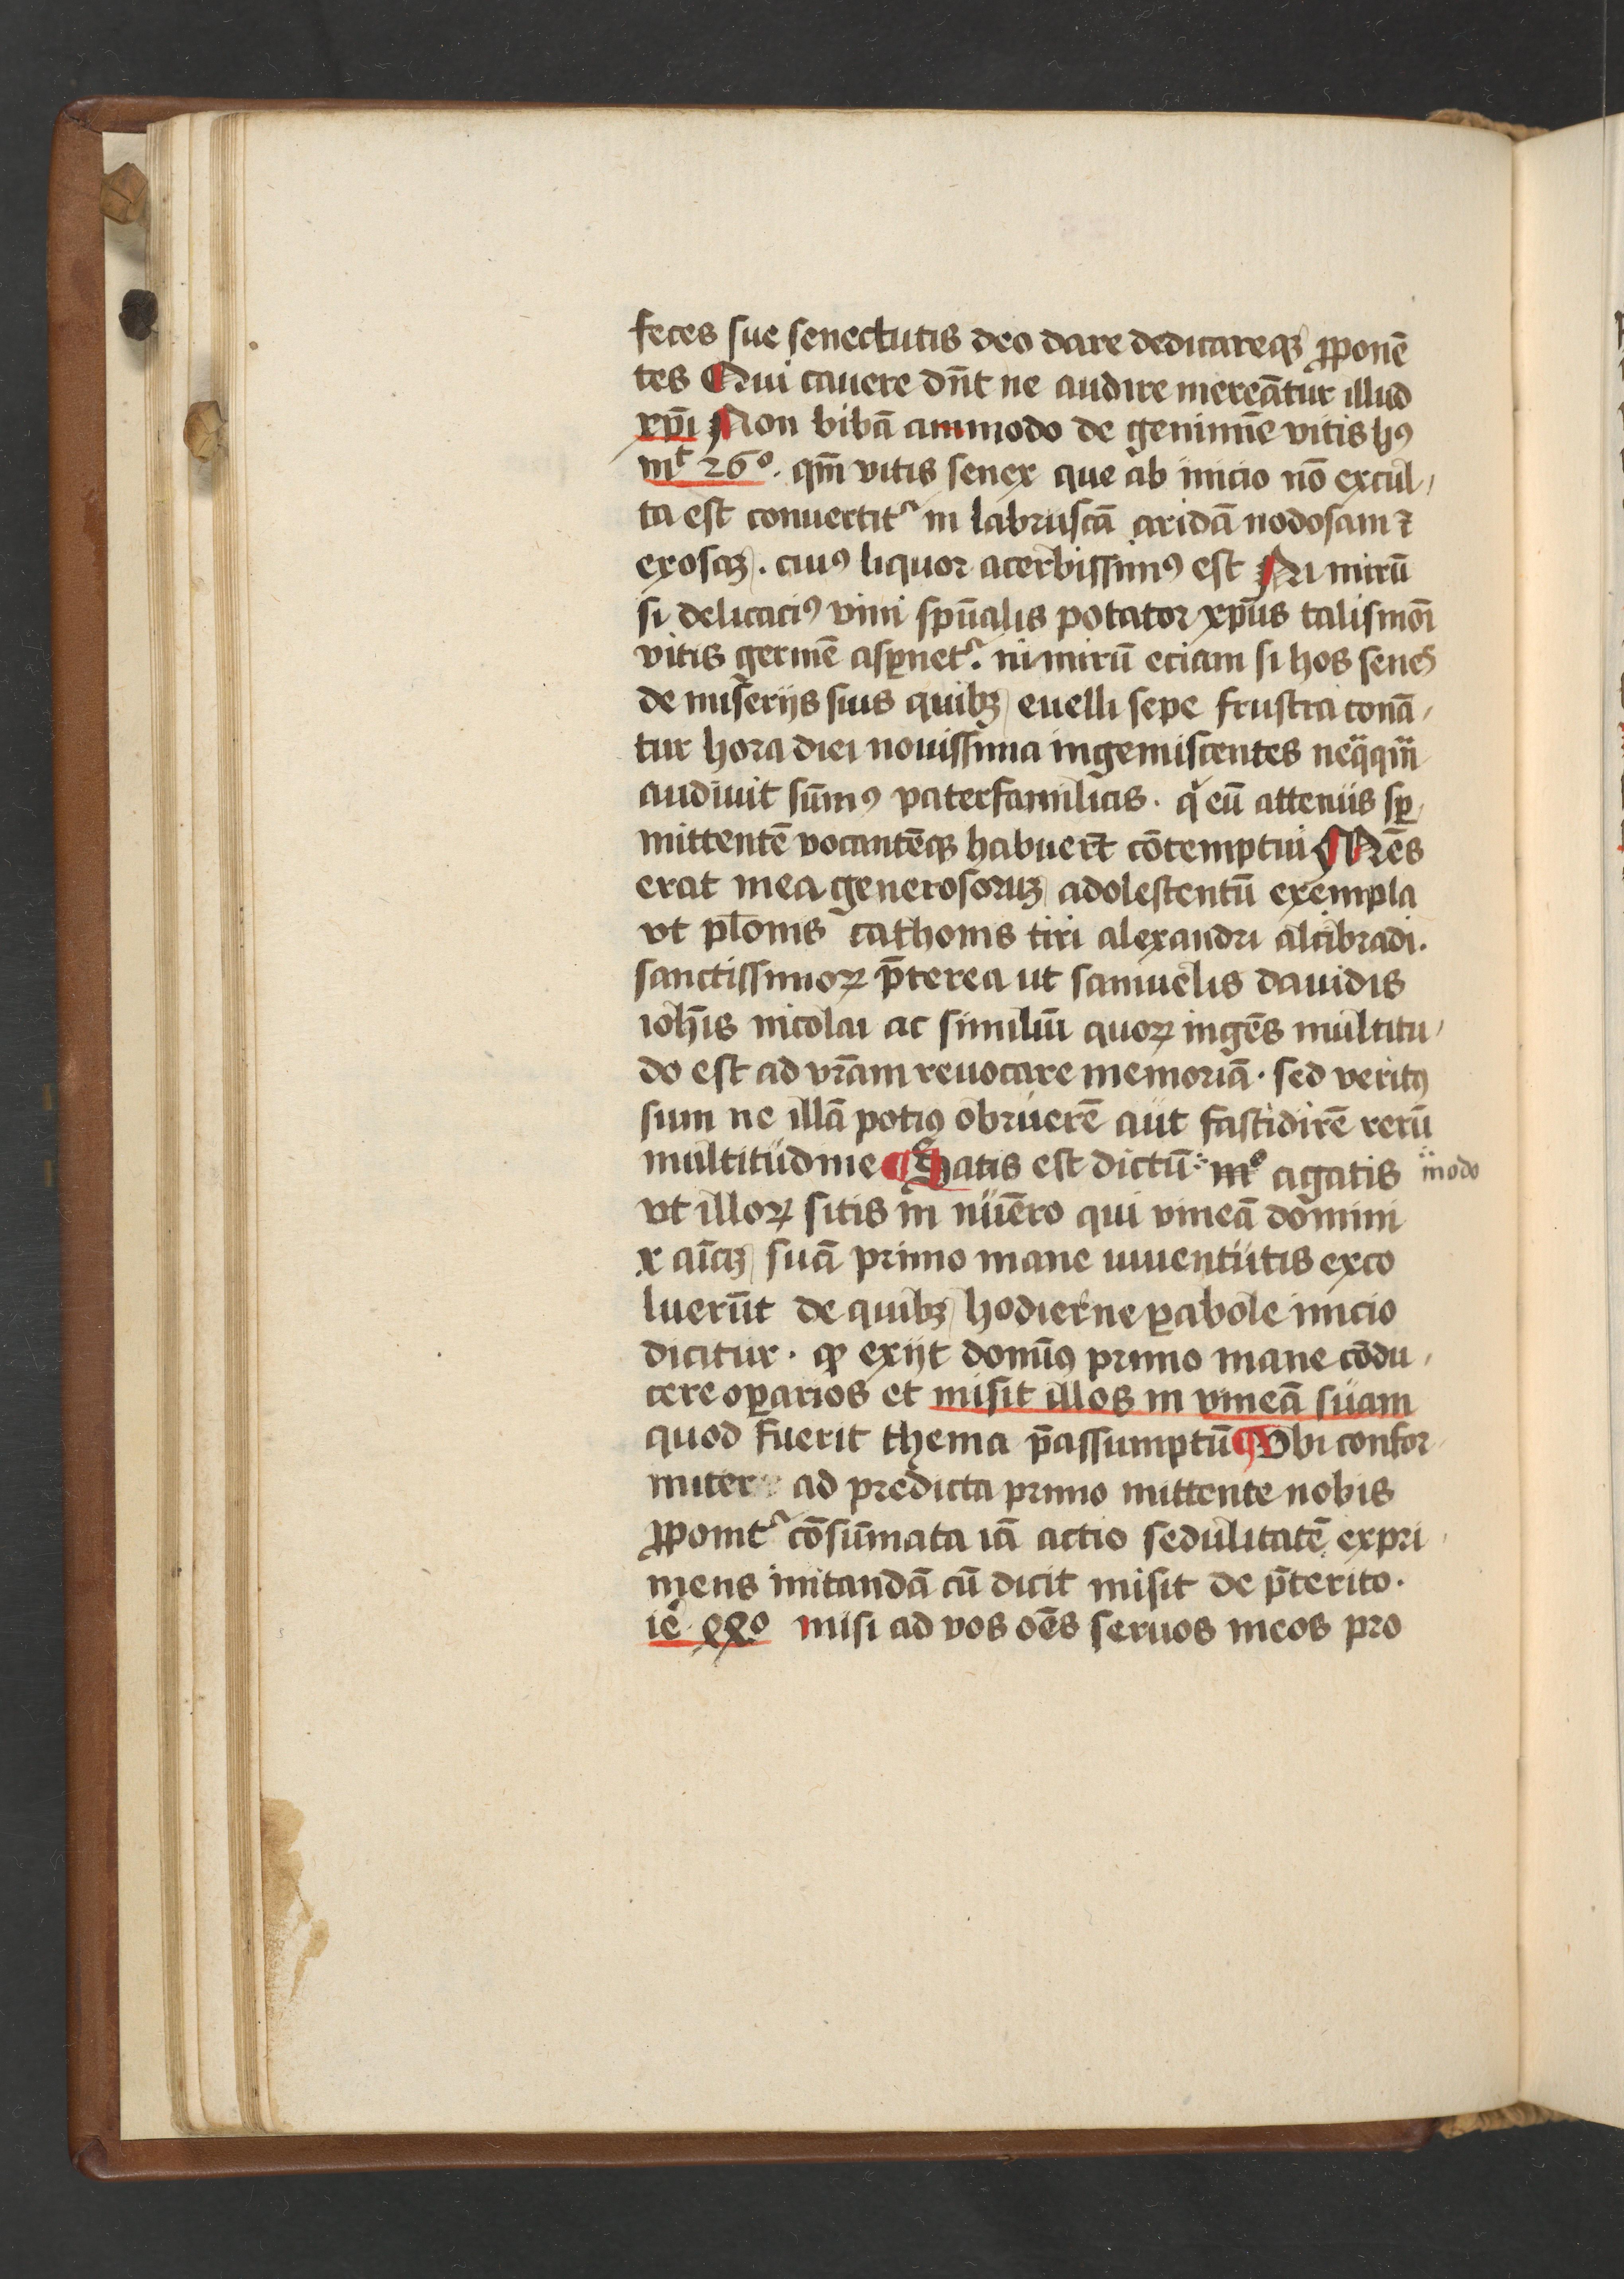 feces sue senectutis deo dare dedicareqꝫ ꝓponē
tes Qui cauere dn̄t ne audire mereātur illud
xp̄i Non bibā ammodo de genimīe vitis hꝰ
mt 26º. qm̄ vitis senex que ab inicio nō excul
ta est conuertitᷣ in labruscā aridā nodosam ⁊
exosaꝫ. cuiꝰ liquor acerbissimꝰ est Ni mirū
si delicaciꝰ vini sp̄ualis potator xp̄us talismōi
vitis germē asꝑnetᷣ. ni mirū eciam si hos senes
de miserijs suis quibꝫ euelli sepe frustra conā
tur hora diei nouissima ingemiscentes neq̄qm̄
audiuit sūmꝰ paterfamilias. q eū attenus sꝑ
mittentē vocantēqꝫ habuert̄ cōtemptui Mēs
erat mea generosoruꝫ adolescentū exempla
vt pl̄onis cathonis tiri alexandri alcibradi.
sanctissimoꝝ p̄terea ut samuelis dauidis
ioh̄is nicolai ac similiū quoꝝ ingēs multitu
do est ad vr̄am reuocare memoriā. sed veritꝰ
sum ne illā potiꝰ obruerē aut fastidirē rerū
multitudine Satis est dictū mº agatis modo
vt illoꝝ sitis in nūero qui vineā domini
x aīaꝫ suā primo mane iuuentutis exco
luerūt de quibꝫ hodierne ꝑabole inicio
dicitur. ꝙ exijt domīꝰ primo mane cōdu
cere oꝑarios et misit illos in vineā suam
quod fuerit thema p̄assumptū Vbi confor
miter ad predicta primo mittente nobis
ꝓponitᷣ cōsūmata iā actio sedulitatē expri
mens imitandā cū dicit misit de p̄terito.
ie xxº misi ad vos oēs seruos meos pro